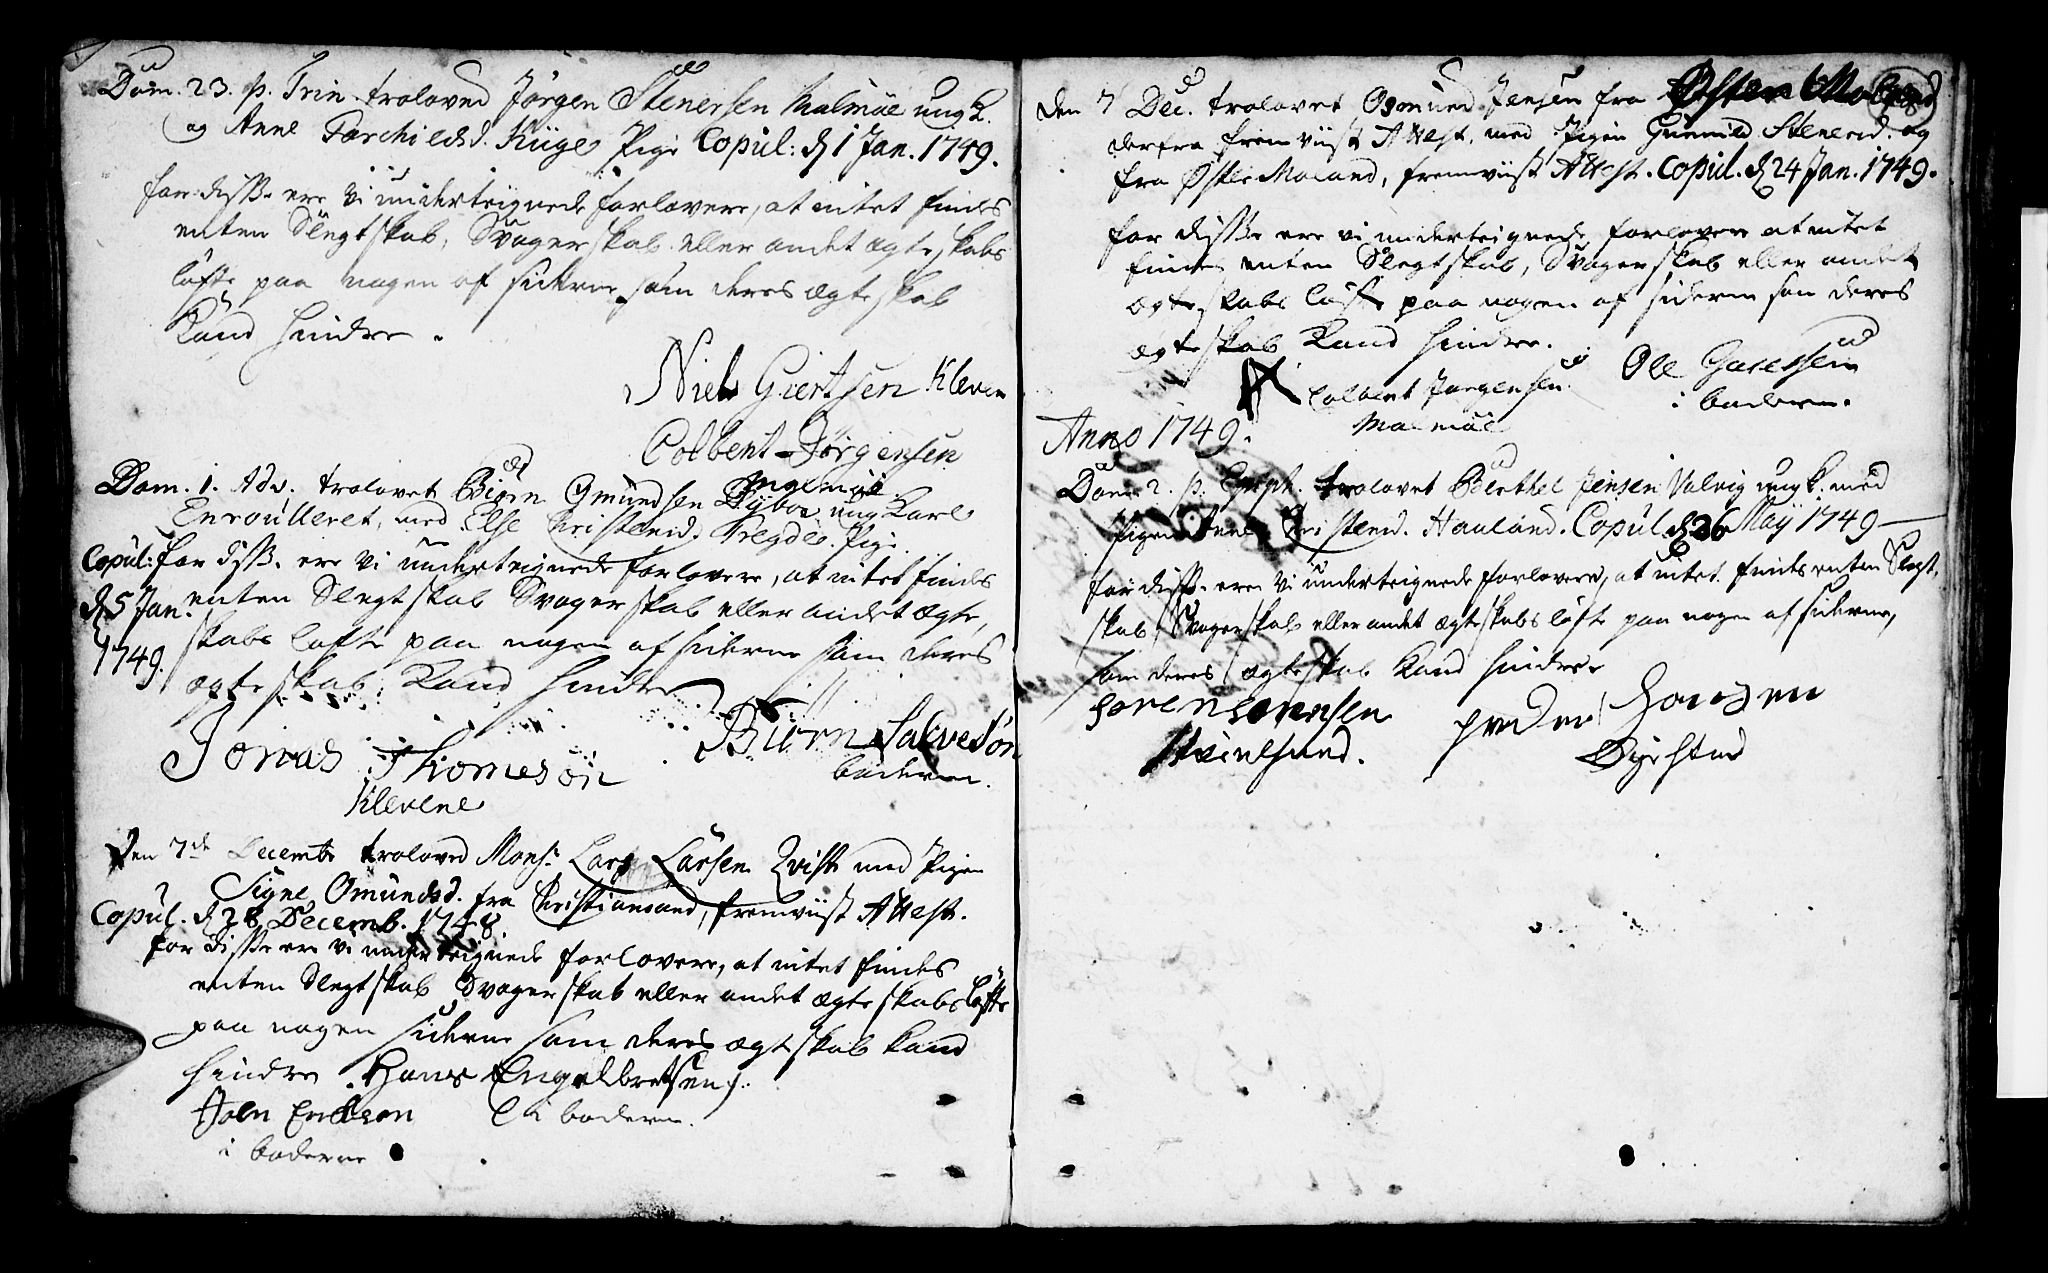 Dom. 23. p. Trin. troloved Jörgen Stenersen Malmöe ung K.
og Anne Torchildsd. Kiige Pige Copul: d 1 Jan. 1749.
for disse ere vi underteignede forlovere, at intet findes
enten Slegtskab, Svogerskab eller andet ægteskabs
löfte paa nogen af siderne som deres ægteskab
kand hindre.
Niels Giertsen Kleven
Colbent Jörgensen
Malmöe
Dom. 1. Adv. trolovet Biörn Gmundsen Dybo ung Karl
Enroulleret, med Else Christensd. Tregde. Pige.
Copul: for disse ere vi underteignede forlovere, at intet findes
d 5 Jan. enten Slegtskab Svogerskab eller andet ægte
1749. skabs løfte paa nogen af siderne som deres
ægteskab kand hindre
Jonas Thomesön Biörn Salvesön
Klevene boderne.
Den 7de Decembr troloved Mons: Lars Larsen Qvist med Pigen
Signe Omundsd. fra Christiansand, fremviist Attest.
Copul. d 28 Decemb. 1748.
for disse ere vi underteignede forlovere, at intet findes
enten Slegtskab Svogerskab eller andet ægteskabs løfte
paa nogen siderne som deres ægtskab kand
hindre. Hans Engelbretsen
i boderne.
i boderne
Den 7 Dec. trolovet Osmund Jensen fra Østen
derfra fremviist Attest, med Pigen Gunnild Stenersd. og
fra Øster Moland, fremviist Attest. Copul. d 24 Jan. 1749.
for disse ere vi underteignede forlovere at intet
findes enten Slegtskab, Svogerskab eller andet
ægteskabs løfte paa nogen af siderne som deres
ægteskab kand hindre.
Colbent Jørgensen Ole
Malmöe i boderne.
Anno 1749.
Dom 2. p. Epiph. trolovet Berthel Jensen Valvig ung K. med
Pigen Anne Christensd. Haaland. Copul d 26 May 1749
for disse ere vi underteignede forlovere, at intet findes enten Slegt
skab, Svogerskab eller andet ægteskabs løfte paa nogen af siderne,
som deres ægteskab kand hindre
Sören Sörensen peder Hansen
Dyrstad